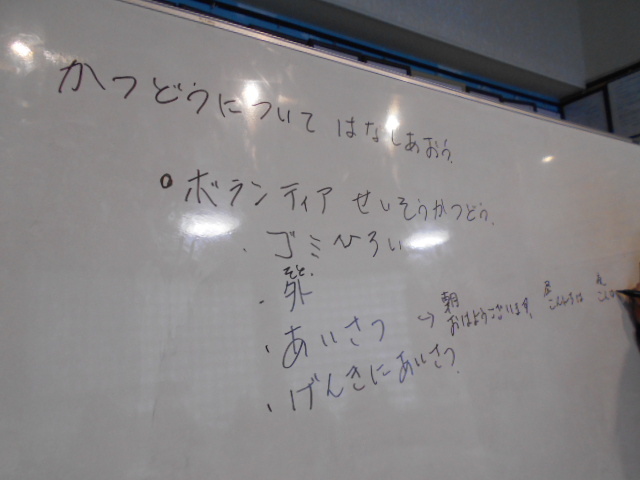 かつどうについて はなしあおう。
ボランティア せいそうかつどう。
・ゴミひろい
そと。
・外
・あいさつ → 朝 おはようございます。 昼 こんにちは
・げんきにあいさつ。